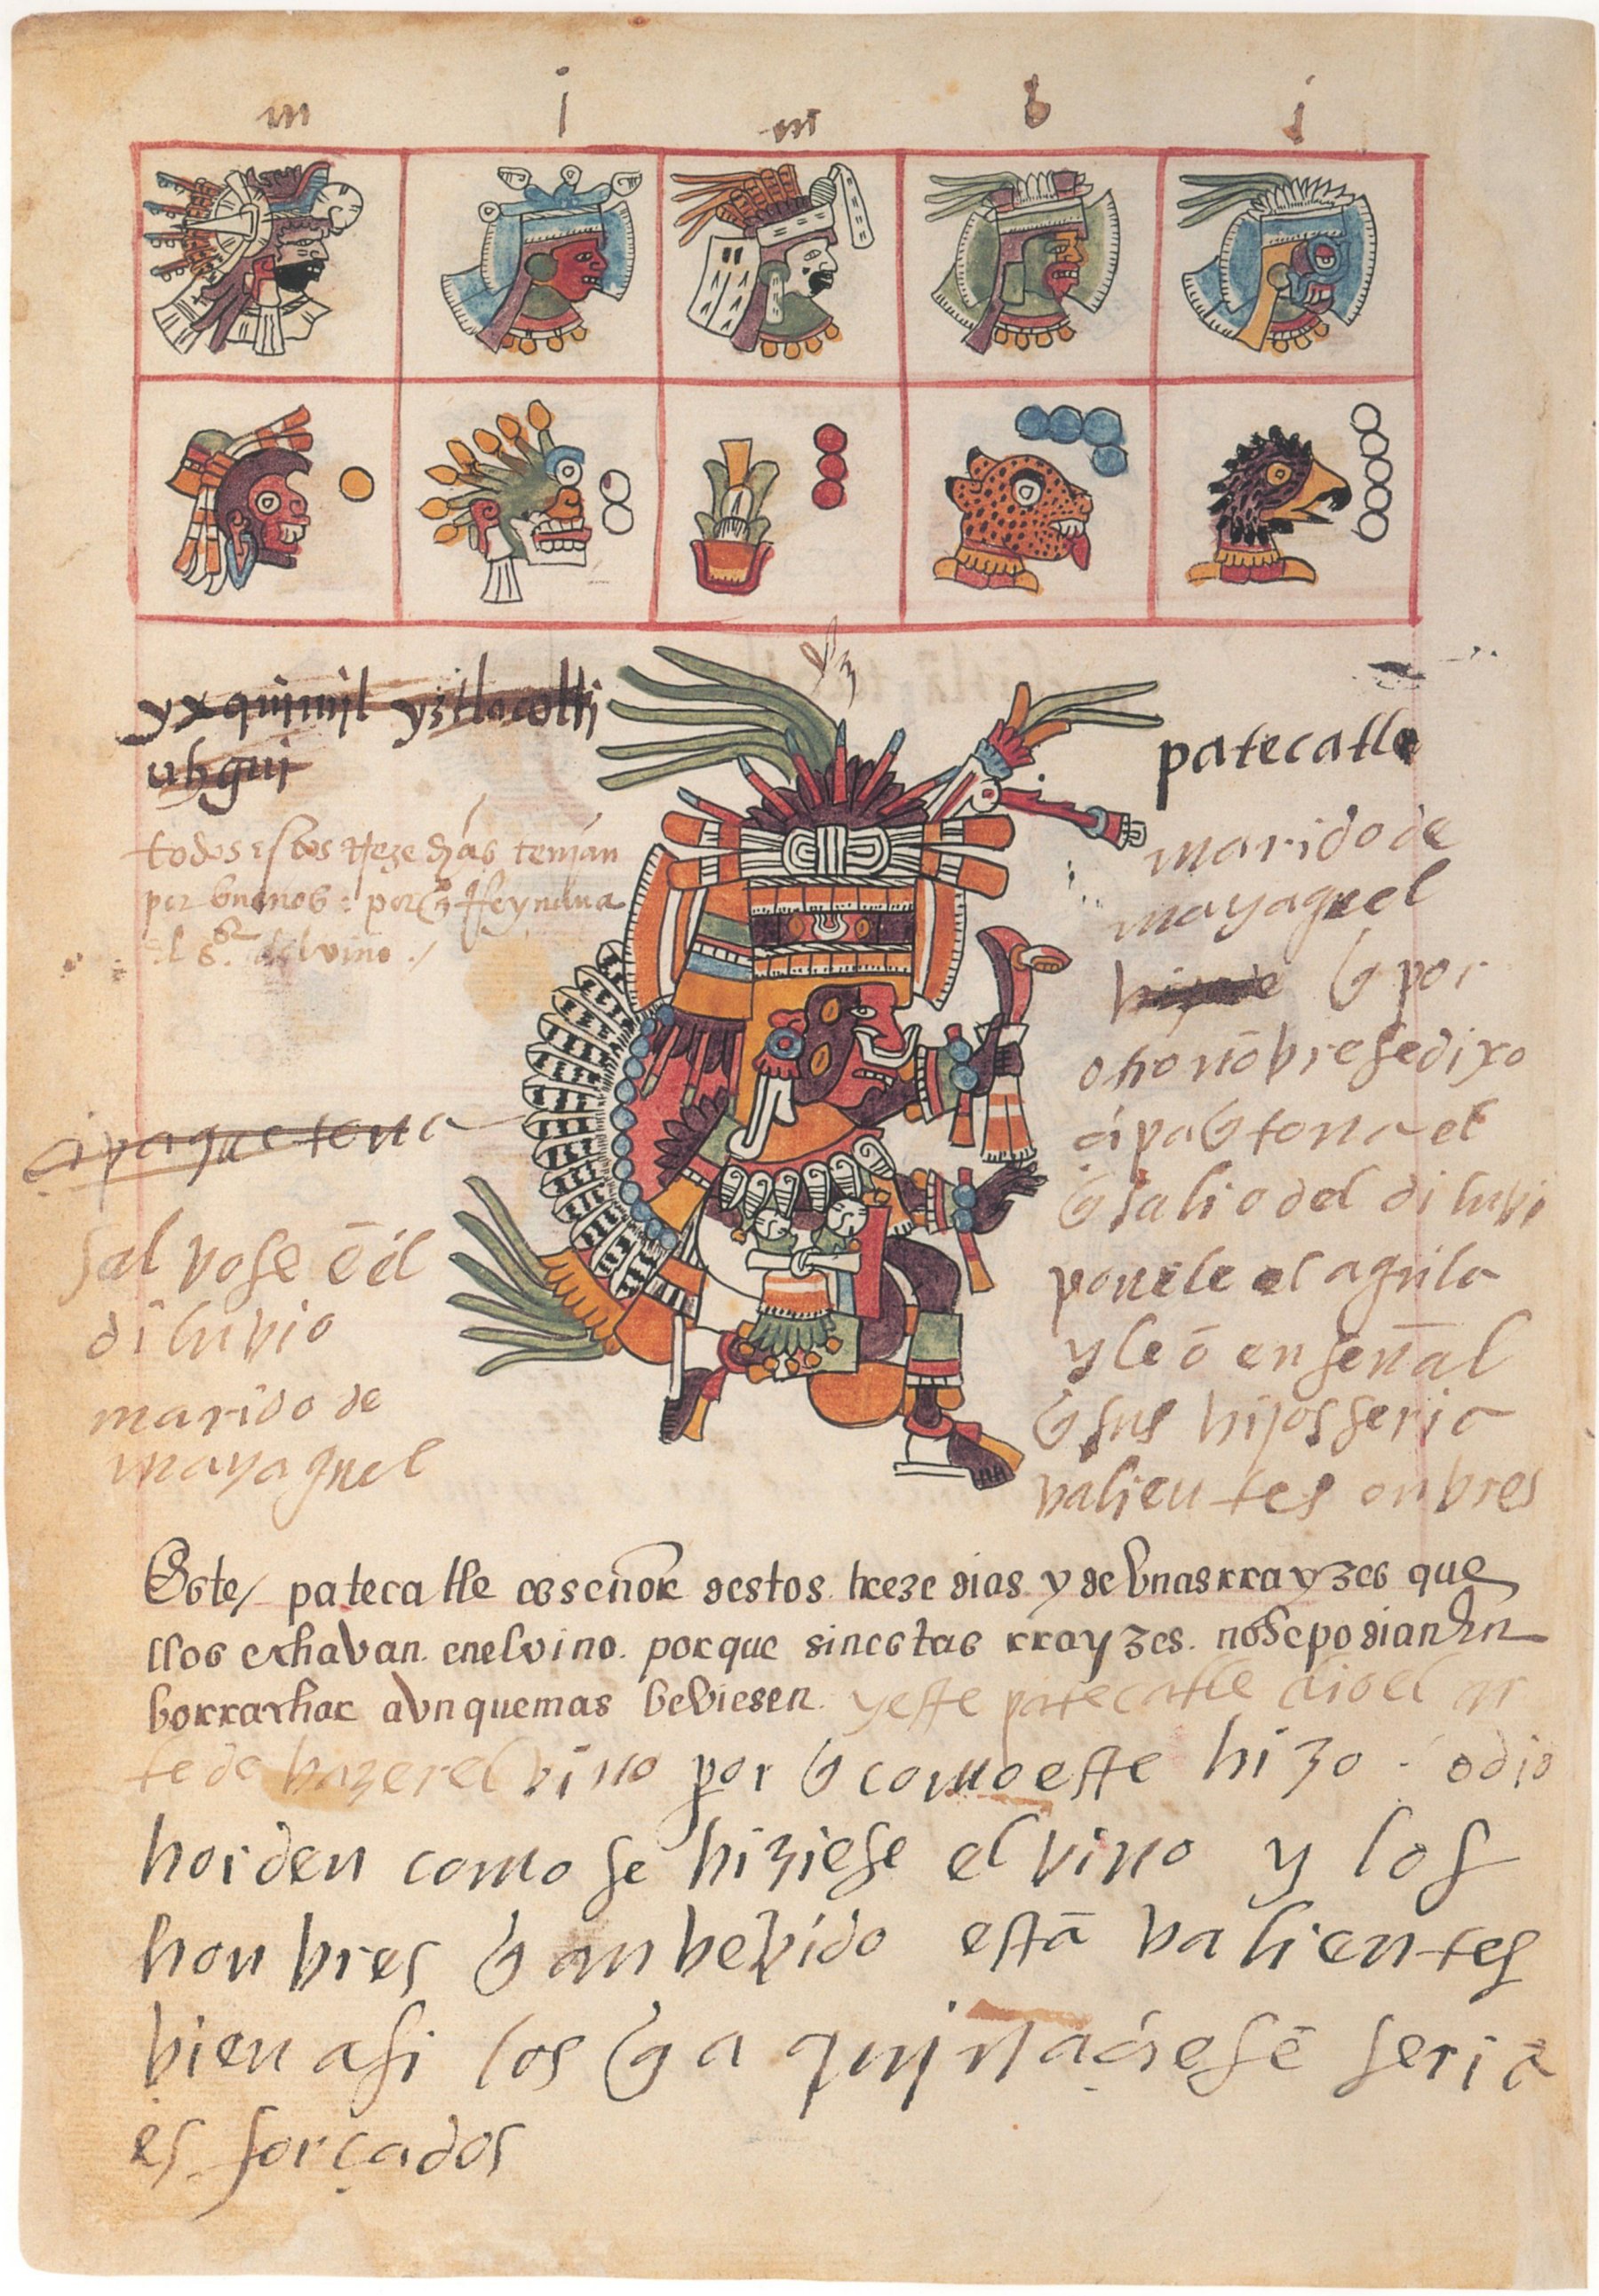 m i m b i
yxquimil yztlacolti
patecatle
todos estos treze días tenían
por buenos : porq̄ Reynava
el s.or del vino .
marido de
mayaguel
q̄ por
otro nōbre se dixo
çipaq̄tona el
q̄ salio del diluvi
ponele el aguila
y leō en señal
q̄ sus hijos seriā
valientes onbres
çipaquetona
salvose ē el
diluvio
marido de
mayaguel
Este patecatle es señor destos treze dias y de unas rrayzes que
llos echavan en el vino. porque sin estas rrayzes. no se podian En
borrachar aunque mas beviesen. y este patecatle dio el ar
te de hazer el vino por q̄ como este hizo . o dio
horden como se hiziese el vino y los
honbres q̄ an bevido estā valientes
bien asi los q̄ aqui naçiesē seriā
esforçados